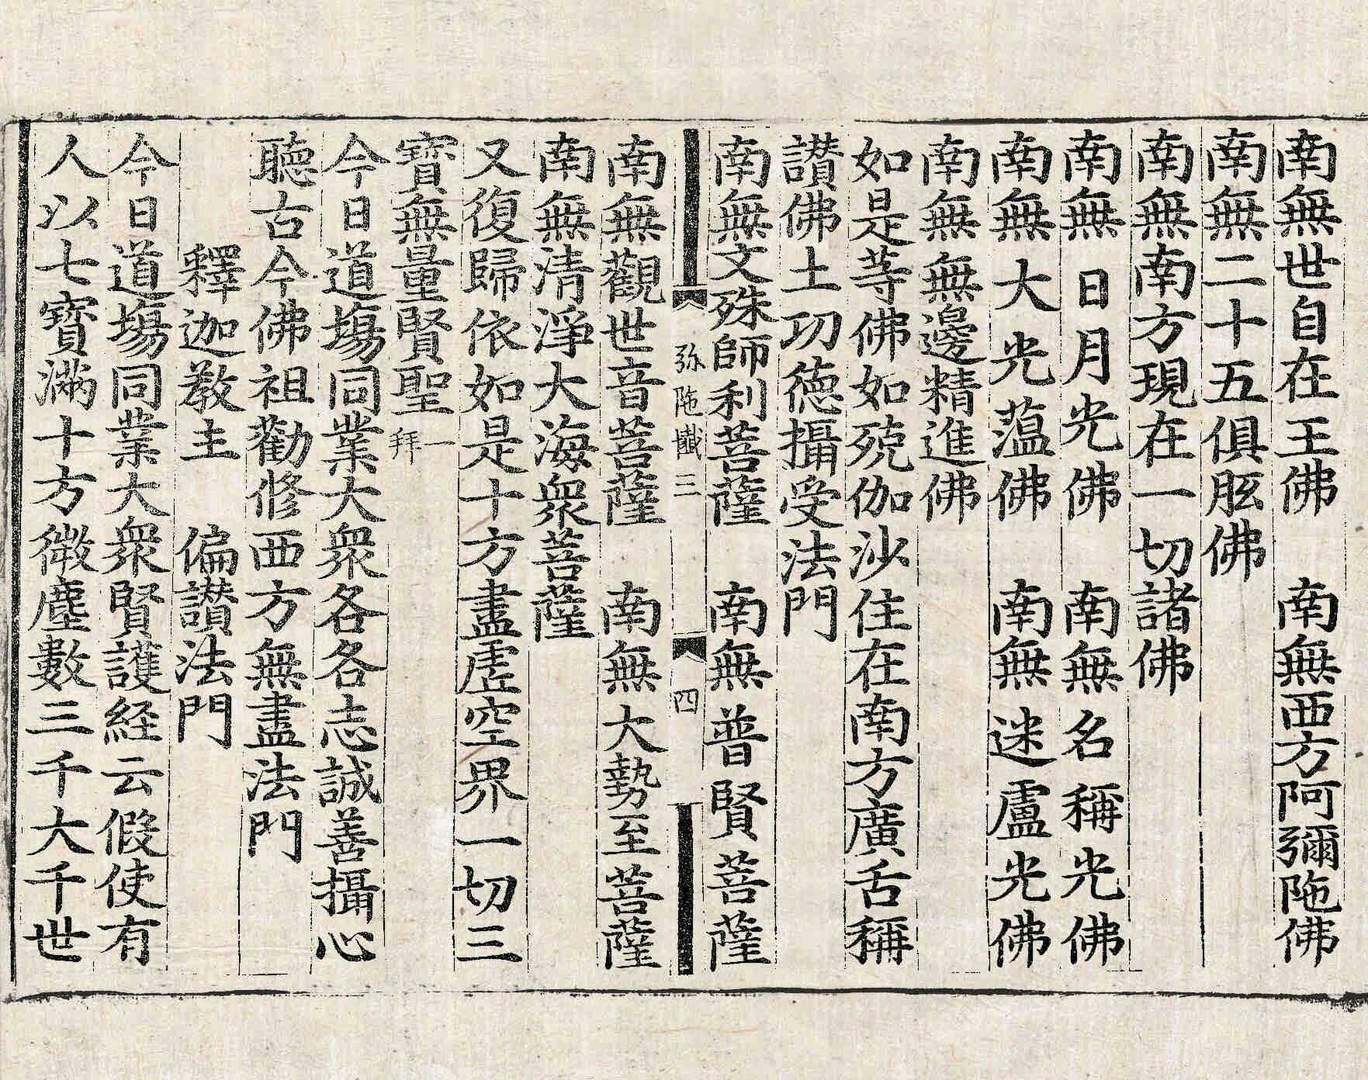 南無世自在王佛　南無西方阿彌陁佛
南無二十五俱胝佛
南無南方現在一切諸佛
南無日月光佛　南無名稱光佛
南無大光蕰佛　南無迷盧光佛
南無無邊精進佛
如是等佛如殑伽沙住在南方廣舌稱
讃佛土功德攝受法門
南無文殊師利菩薩　南無普賢菩薩
弥陁懺三　四
南無觀世音菩薩　南無大勢至菩薩
南無清淨大海衆菩薩
又復歸依如是十方盡虛空界一切三
寶無量賢聖一拜
今日道塲同業大衆各各志誠善攝心
聽古今佛祖勸修西方無盡法門
釋迦教主　偏讃法門
今日道塲同業大衆賢護経云假使有
人以七寶滿十方微塵數三千大千世